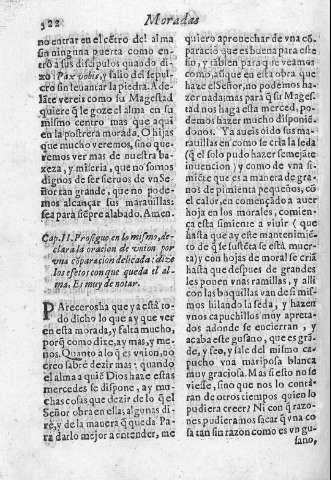 322
Moradas
no entrar en el cẽtro del alma
sin ninguna puerta como en
tró a sus discipulos quando di
xo: Pax vobis, y salio del sepul
cro sin leuantar la piedra. Ade
lãte vereis como su Magestad
quiere q̃ le goze el alma en su
mismo centro mas que aqui
en la postrera morada. O hijas
que mucho veremos, sino que
remos ver mas de nuestra ba
xeza, y miseria, que no somos
dignas de ser sieruos de vn Se
ñor tan grande, que no pode
mos alcançar sus marauillas:
sea para siẽpre alabado. Amen.
Cap. II. Prosigue en lo mismo, de
clara la oracion de vnion por
vna cõparacion delicada: dize
los efetos con que queda el al
ma. Es muy de notar.
PArecerosha que ya està to
do dicho lo que ay que ver
en esta morada, y falta mucho,
porq̃ como dixe, ay mas, y me
nos. Quanto a lo q̃ es vnion, no
creo sabrè dezir mas: quando
el alma a quiẽ Dios haze estas
mercedes se dispone, ay mu-
chas cosas que dezir de lo q̃ el
Señor obra en ellas; algunas di
rè, y de la manera q̃ queda. Pa
ra darlo mejor a entender, me
quiero aprouechar de vna cõ-
paraciõ que es buena para este
fin, y tambien para q̃ veamos
como, aunque en esta obra que
haze el Señor, no podemos ha-
zer nada, mas para q̃ su Mages
tad nos haga esta merced, po-
demos hazer mucho disponiẽ
donos. Ya aureis oido sus ma-
rauillas en como se cria la seda
(q̃ el solo pudo hazer semejãte
inuencion) y como de vna si-
miẽte q̃ es a manera de granos
de pimienta pequeños, cõ
el calor, en començado a auer
hoja en los morales, comien-
ça esta simiente a viuir ( que
hasta que ay este mantenimiẽ-
to de q̃ se sustẽta se està muer-
ta) y con hojas de moral se criã
hasta que despues de grandes
les ponen vnas ramillas, y allí
con las boquillas van de si mis
mos hilando la seda, y hazen
vnos capuchillos muy apreta
dos adonde se encierran, y
acaba este gusano, que es grã-
de, y feo, y sale del mismo ca-
pucho vna mariposa blanca
muy graciosa. Mas si esto no se
viesse, sino que nos lo contà-
ran de otros tiempos quien lo
pudiera creer? Ni con q̃ razo-
nes pudieramos sacar q̃ vna co
sa tan sin razon como es vn gu-
sano,